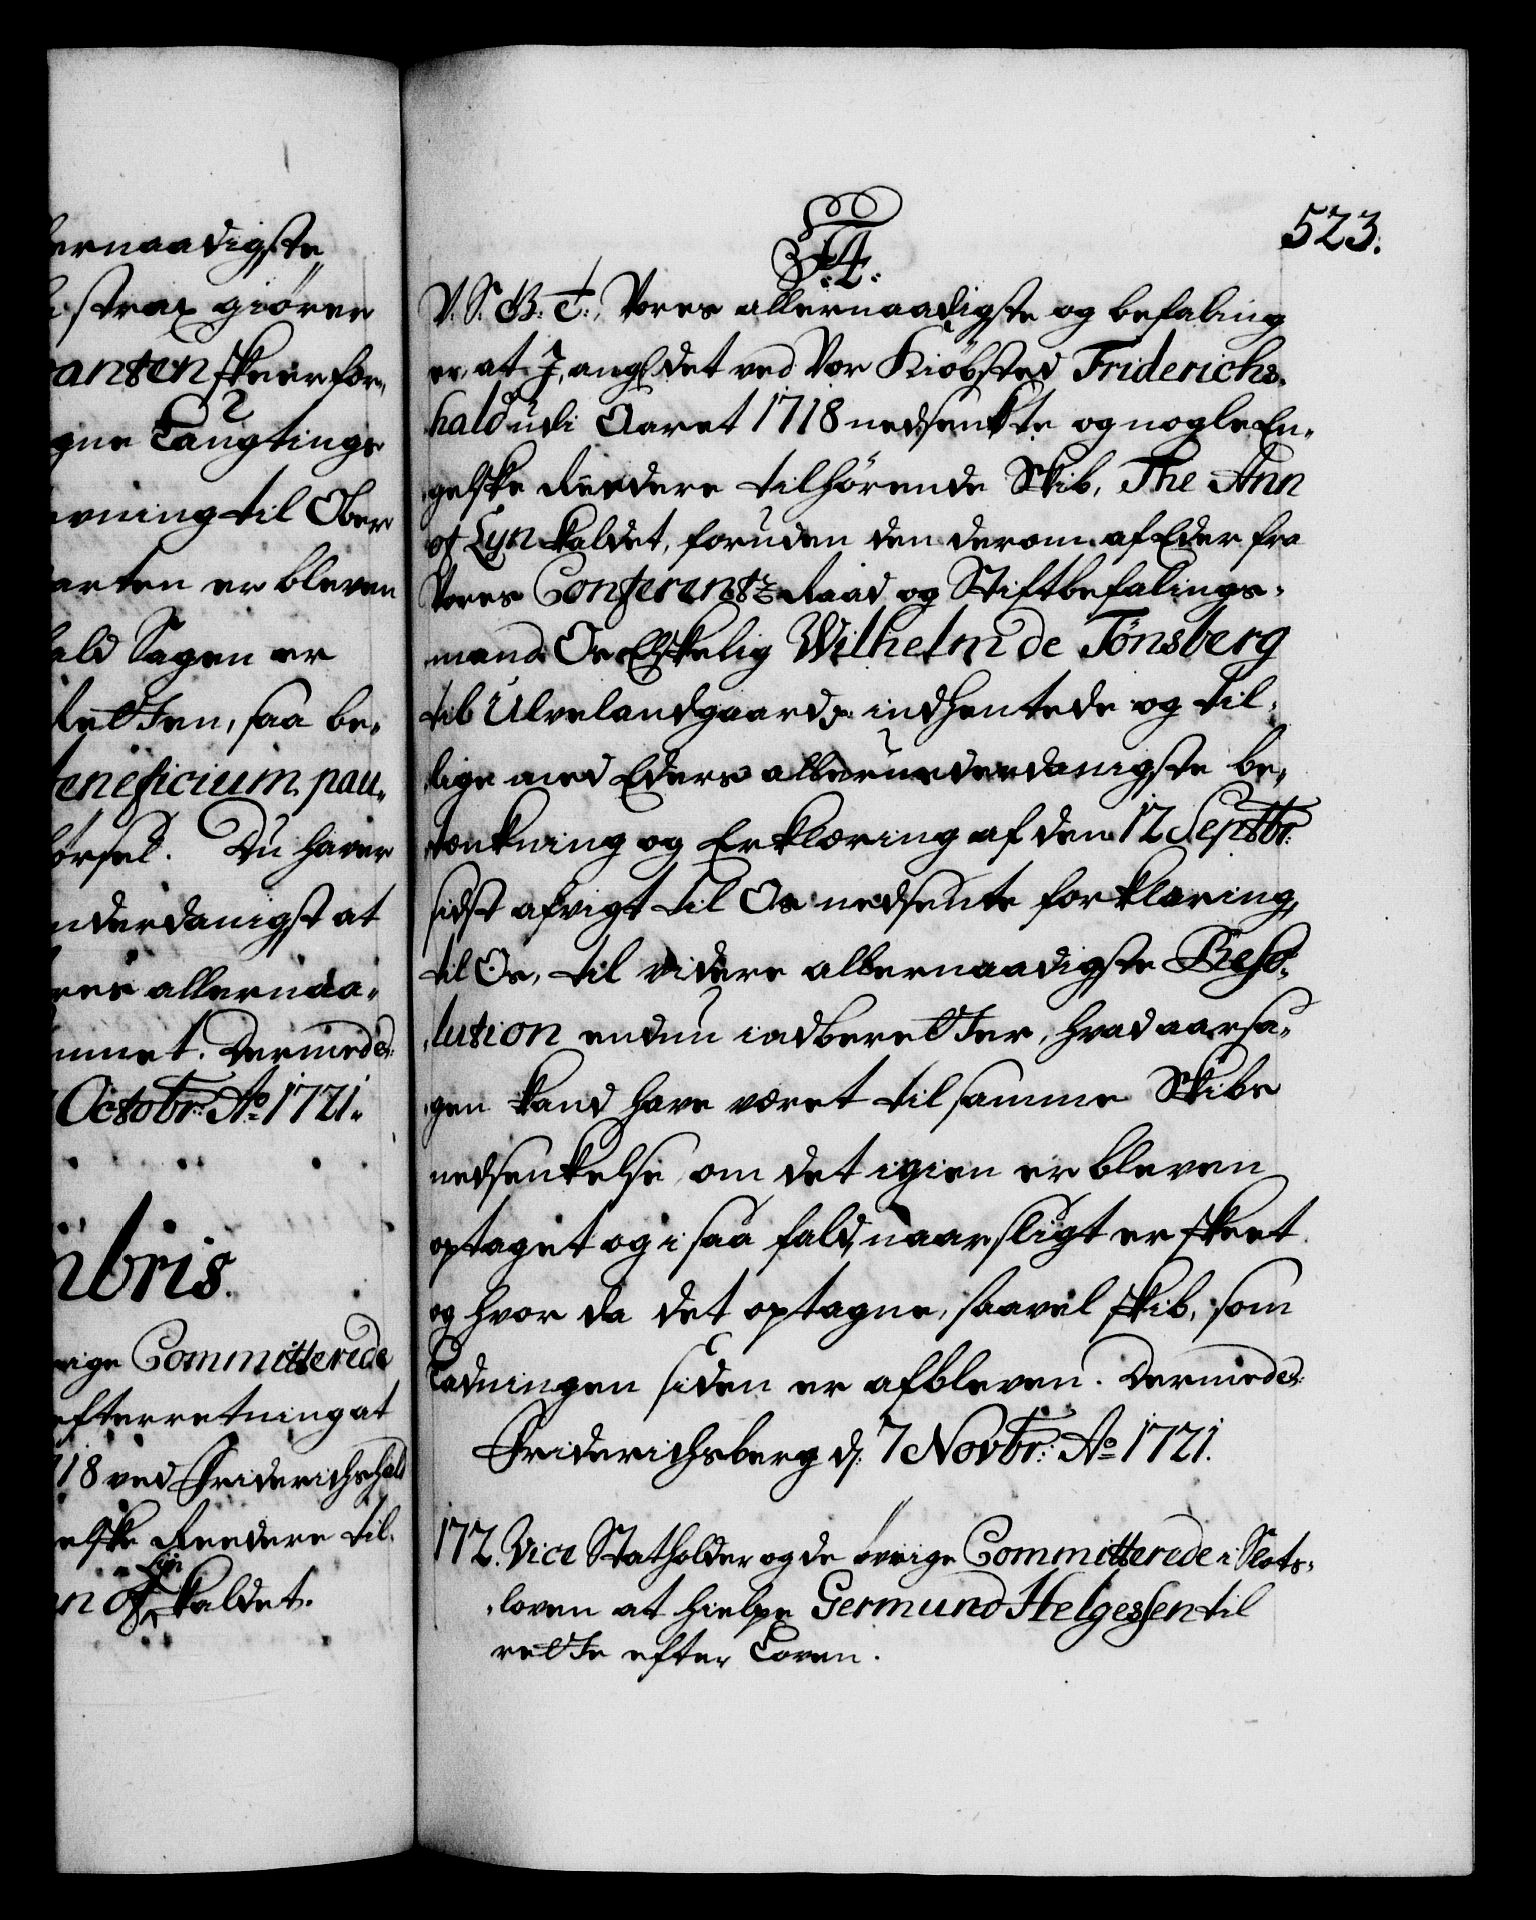 ernaadigste
strax giøre
anten skeer for,
gne Laugtings
vning til Ober
arten er bleven
ald Sagen er
Retten, saa be,
eneficium pau,
ørsel. Du haver
nderdanigst at
res allernaa,
mmet. Dermed etc:
Octobr: Ao 1721.
ubris.
rige Committerede
efterretning at
718 ved Friderichshald
elske Reedere til,
n of Lyn kaldet.
523.
F4.
V. S. G: T:, Vores allernaadigste og befaling
er, at I, ang: det ved Vor Kiøbsted Friderichs,
hald udi Aaret 1718 nedsenkte og nogle En,
gelske Reedere tilhørende Skib, The Ann
of Lyn kaldet, foruden den derom af Eder fra
Vores Conferentz Raad og Stiftbefalings,
mand Os Elskelig Wilhelm de Tönsberg
til Ulvelandgaard indhentede og til,
lige med Eders allerunderdanigste be,
tænkning og Erklæring af den 12 Septbr:
sidst afvigt til Os nedsente forklaring,
til Os, til videre allernaadigste Reso,
lution endnu indberetter, hvad aarsa,
gen kand have været til samme Skibs
nedsenkelse, om det igien er bleven
optaget og i saa fald, naar sligt er skeet
og hvor da det optagne, saavel skib, som
Ladningen siden er afbleven. Dermed etc:
Friderichsberg d: 7 Novbr: Ao 1721.
172. Vice Statholder og de øvrige Committerede i Slots,
loven at hielpe Germund Helgessen til
rette efter Loven.